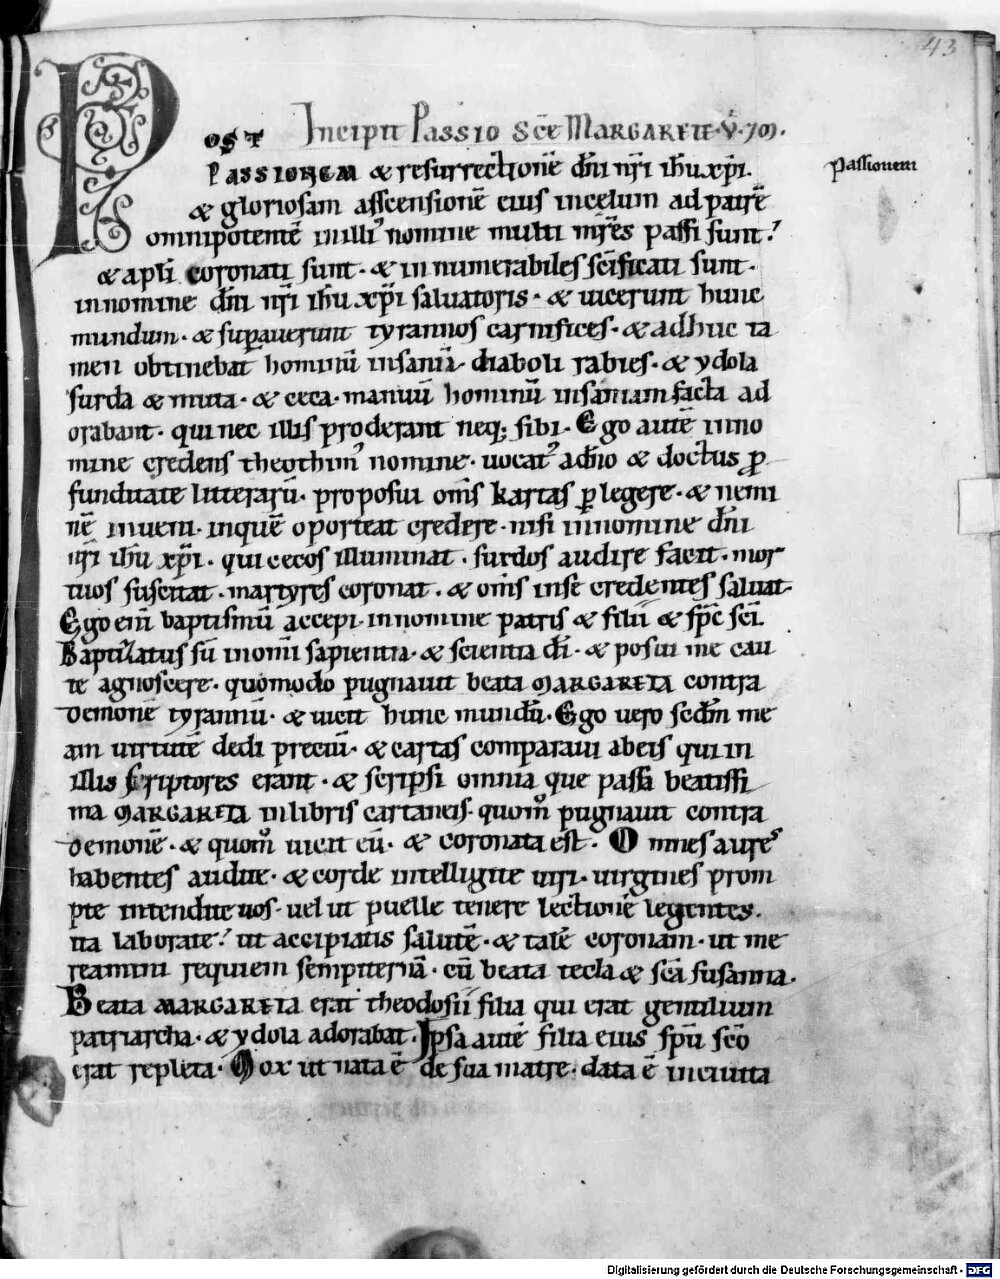 43
Incipit Passio Scē Margarete · V̄ · 
POST
PASSIONEM & resurrectionē dn̄i nr̄i ih̄u xp̄i.
& gloriosam asscensionē eius incelum ad patrē
omnipotentē inilliꝰ nomine multi mr̄es passi sunt?
& apl̄i coronati sunt · & innumerabiles sc̄ificati sunt ·
innomine dn̄i nr̄i ih̄u xp̄i saluatoris · & uicerunt hunc
mundum · & suꝑauerunt tyrannos carnifices · & adhuc ta
men obtinebat hominū insaniā · diaboli rabies · & ydola
surda & muta · & ceca · manuū hominū insaniam facta ad
orabant · qui nec illis proderant neq; sibi · Ego autē inno
mine credens theothimꝰ nomine · uocatꝰ a dn̄o & doctus ꝑ
funditate litterarū · proposui om̄s kartas ꝑlegere · & nemi
nē inueni · inquē oporteat credere · nisi innomine dn̄i
nr̄i ih̄u xp̄i · qui cecos illuminat · surdos audire facit · mor
tuos suscitat · martyres coronat · & om̄s inse credentes saluat ·
Ego em̄ baptismū accepi · innomine patris & filii & sp̄c sc̄i.
Baptizatus sū inom̄i sapientia · & scientia dī · & posui me cau
te agnoscere · quomodo pugnauit beata MARGARETA contra
demonē tyrannū · & uicit hunc mundū · Ego uero scdm̄ me
am uirtutē dedi preciū · & cartas comparaui abeis qui in
illis scriptores erant · & scripsi omnia que passa beatissi
ma MARGARETA inlibris cartaneis · quom̊ pugnauit contra
demonē · & quom̊ uicit eū · & coronata est · Omnes aures
habentes audite · & corde intelligite uiri · uirgines prom
pte intendite uos · uel ut puelle tenere lectionē legentes.
ita laborate? ut accipiatis salutē · & talē coronam · ut me
reamini requiem sempiternā · cū beata tecla & sc̄a susanna ·
Beata MARGARETA erat theodosii filia qui erat gentilium
patriarcha · & ydola adorabat · Ipsa autē filia eius sp̄u sc̄o
erat repleta · Mox ut nata ē de sua matre · data ē inciuita
passionem
Digitalisierung gefördert durch die Deutsche Forschungsgemeinschaft - DFG